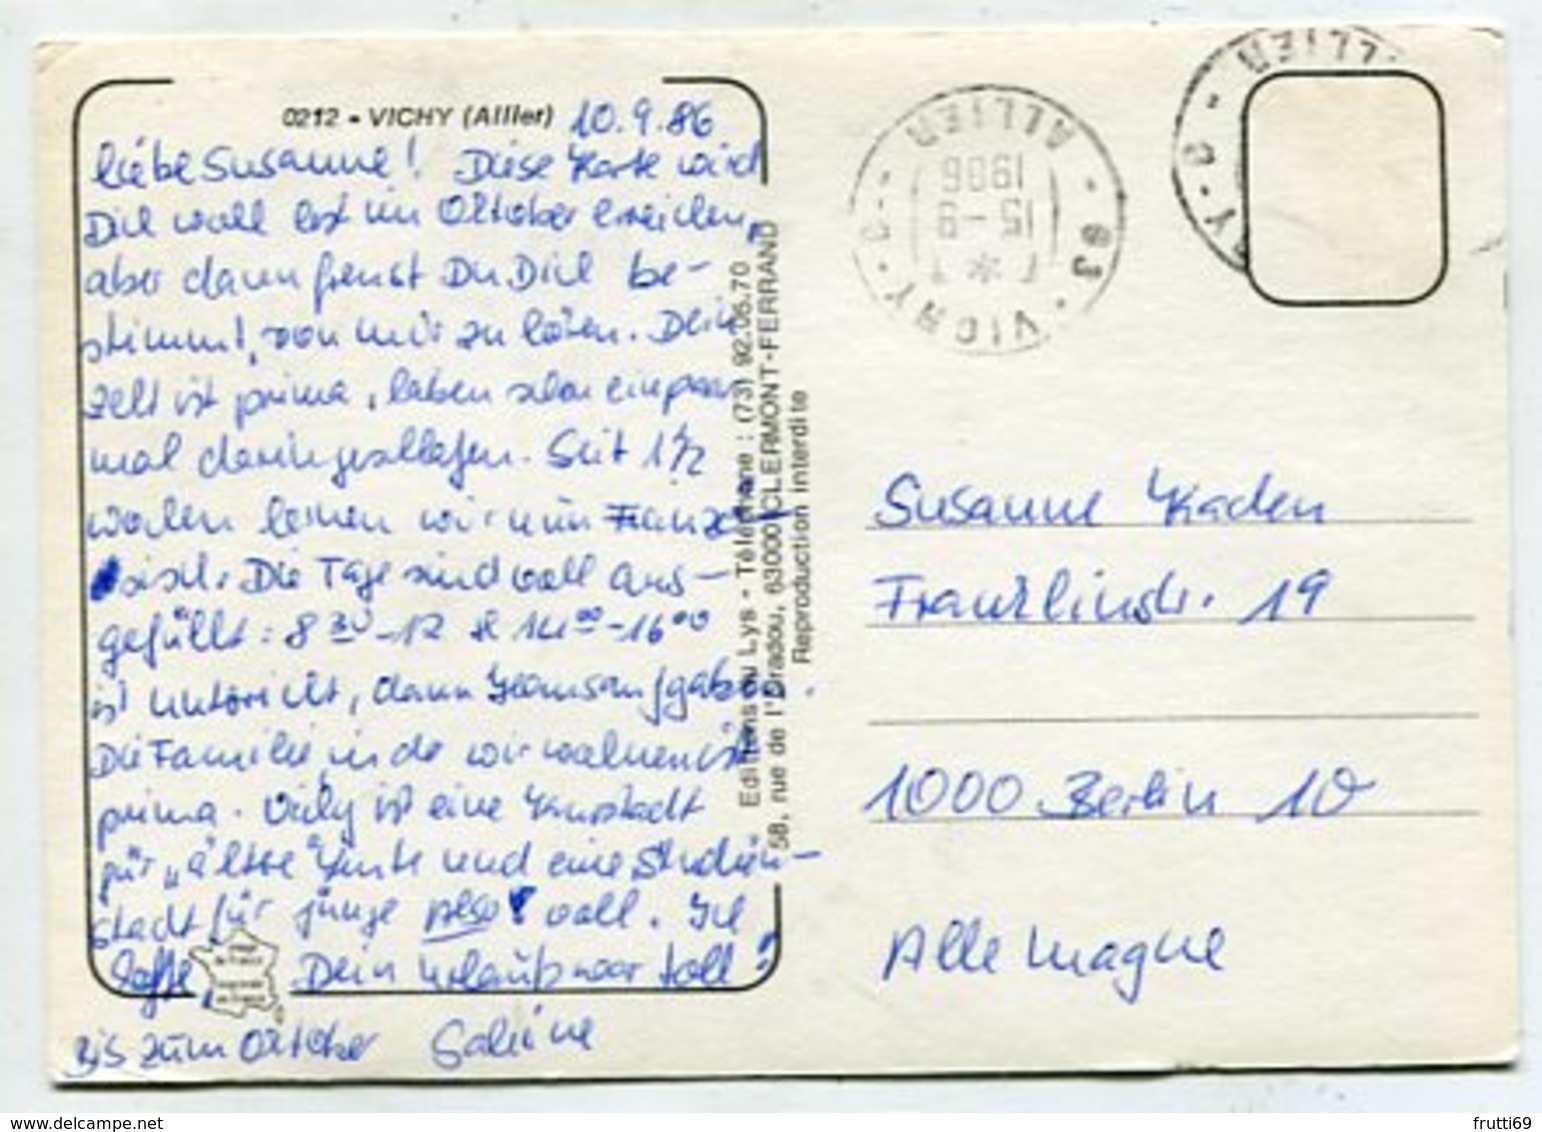 0212 - VICHY (Allier) 10.9.86
liebe Susanne! Diese Karte wird
Dich wohl erst im Oktober erreichen,
aber dann freust Du Dich be-
stimmt, von mir zu hören. Dein
Zelt ist prima, haben schon ein paar
mal darin geschlafen. Seit 1 1/2
Wochen lernen wir nun Franzö
sisch. Die Tage sind voll aus-
gefüllt: 8 30 - 12 & 14 00 - 16 00
ist Unterricht, dann Hausaufgaben.
Die Familie, in der wir wohnen ist
prima. Vichy ist eine Kurstadt
für "ältere" Leute und eine Studien-
stadt für junge also toll. Ich
hoffe, Dein Urlaub war toll!
Bis zum Oktober Sabine
Editions du Lys - Téléphone : (73) 92.05.70
58, rue de l'Oradou, 63000 CLERMONT-FERRAND
Reproduction interdite
VICHY · ALLIER
15 -9
1986
ALLIER
Susanne Kaden
Franklinstr. 19
1000 Berlin 10
Allemagne
frutti69